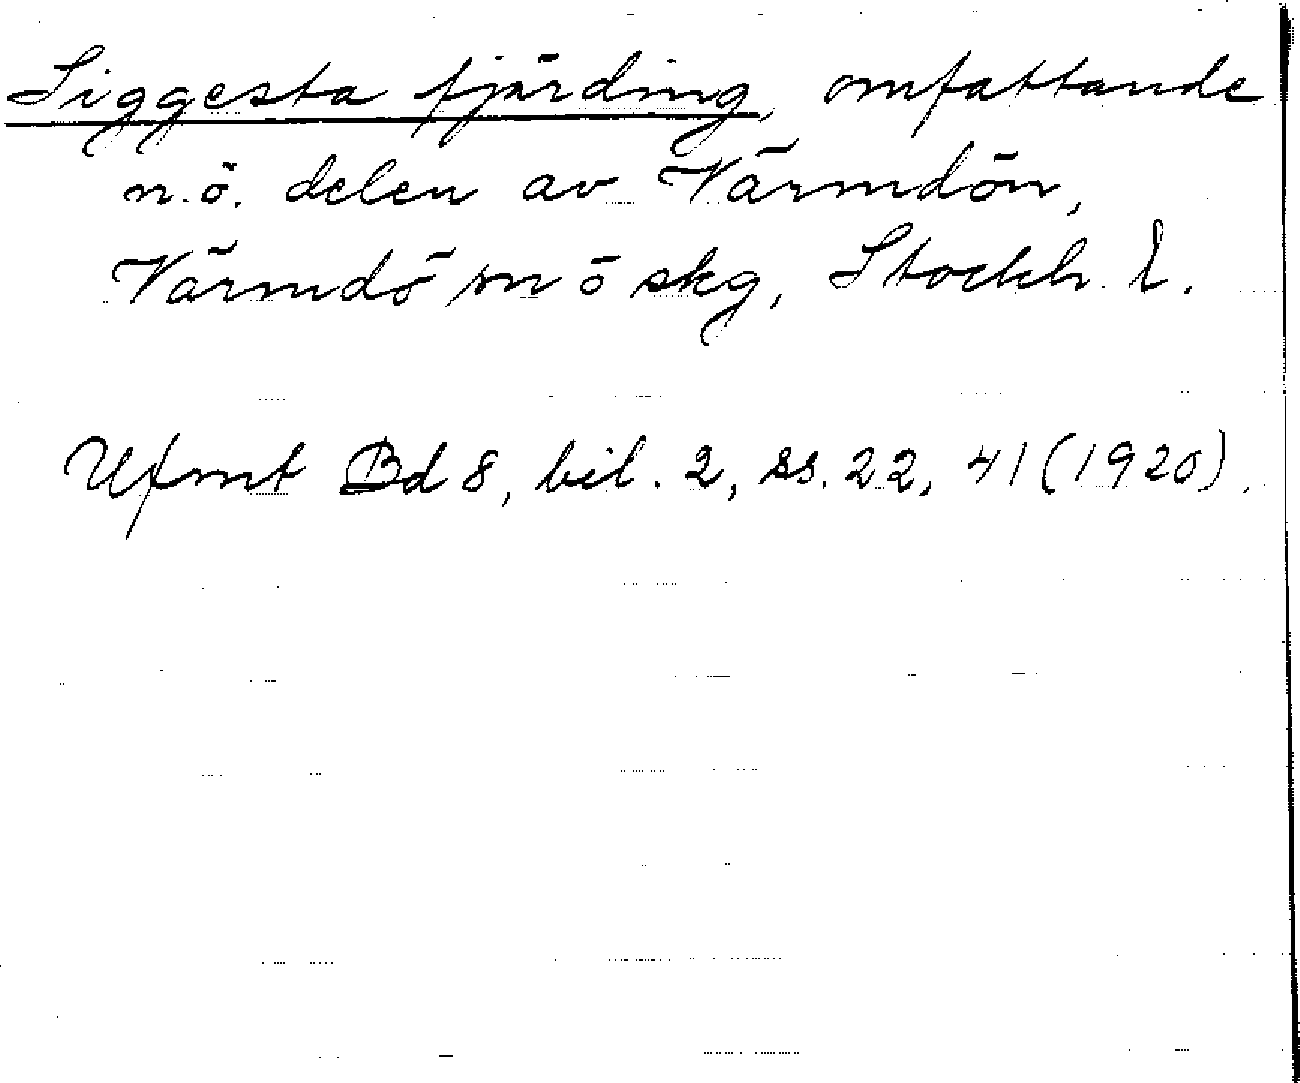 Siggesta fjärding, omfattande
n.ö. delen av Värmdön,
Värmdö sn ö skg, Stockh. l.
Ufmt Bd 8, bil. 2, ss. 22, 41 (1920).